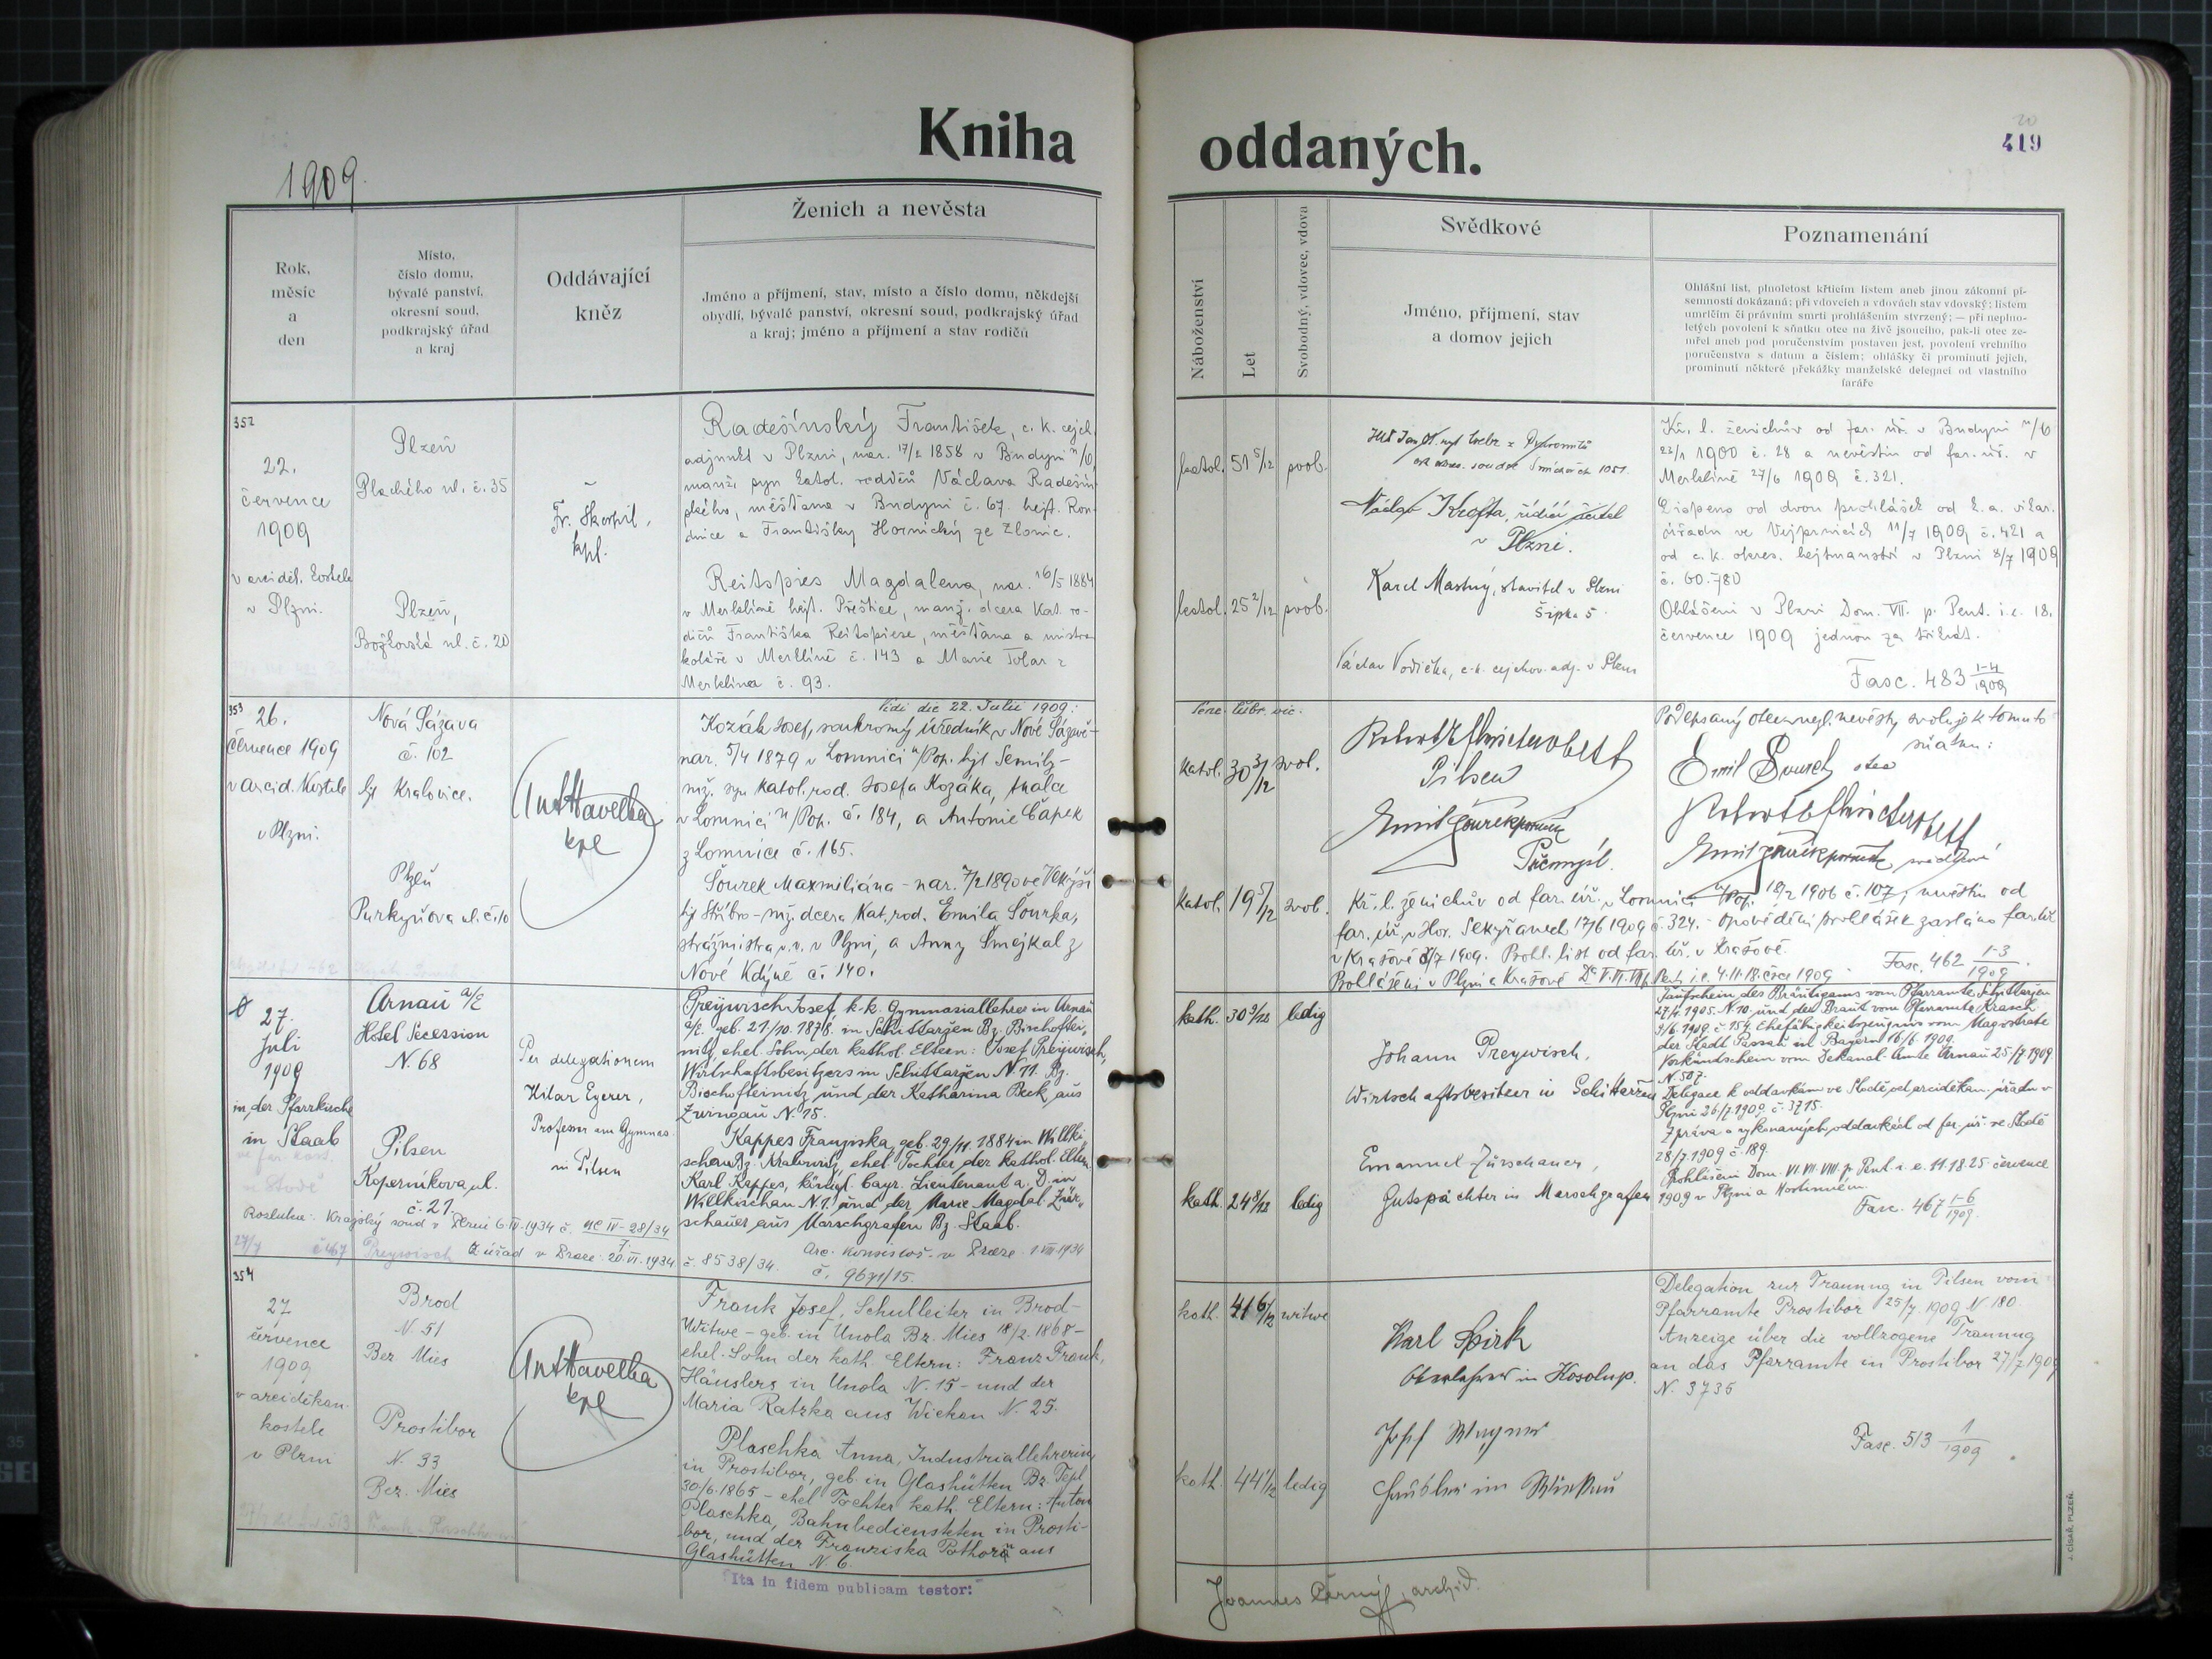 Kniha oddaných.
419
1909.
Rok,
měsíc
a
den
Místo,
číslo domu,
bývalé panství,
okresní soud,
podkrajský úřad
a kraj
Oddávající
kněz
Ženich a nevěsta
Jméno a příjmení, stav, místo a číslo domu, někdejší
obydlí, bývalé panství, okresní soud, podkrajský úřad
a kraj; jméno a příjmení a stav rodičů
Náboženství
Let
Svobodný, vdovec, vdova
Svědkové
Jméno, příjmení, stav
a domov jejich
Poznamenání
Ohlášní list, plnoletost křticím listem aneb jinou zákonní pí-
semností dokázaná; při vdovcích a vdovách stav vdovský; listem
umrlčím či právním smrti prohlášením stvrzený; — při neplno-
letých povolení k sňatku otce na živě jsoucího, pak-li otec ze-
mřel aneb pod poručenstvím postaven jest, povolení vrchního
poručenstva s datum a číslem; ohlášky či prominutí jejich,
prominutí některé překážky manželské delegací od vlastního
faráře
352
22.
července
1909
v arciděk. kostele
v Plzni.
Plzeň
Plachého ul. č. 35
Plzeň,
Božkovská ul. č. 20
Fr. Škorpil,
kpl.
Radešínský František, c. k. cejch.
adjunkt v Plzni, nar. 17/2 1858 v Budyni n/O,
manž. syn katol. rodičů Václava Radešín-
ského, měšťana v Budyni č. 67. hejt. Rou-
dnice a Františky Hornický ze Zlonic.
Reitspies Magdalena, nar. 16/5 1884
v Merklíně hejt. Přeštice, manž. dcera kat. ro-
dičů Františka Reitspiese, měšťana a mistra
koláře v Merklíně č. 143 a Marie Tolar z
Merklína č. 93.
katol. 51 5/12 svob.
katol. 25 2/12 svob.
Václav Krofta, řídící učitel
v Plzni.
Karel Mastný, stavitel v Plzni
Šipka 5
Václav Vodička, c. k. cejchov. adj. v Plzni
Kř. l. ženichův od far. úř. v Budyni n/O
22/1 1900 č. 28 a nevěstin od far. úř. v
Merklíně 27/6 1909 č. 321.
Dispens od dvou prohlášek od b. a. vikar.
úřadu ve Vejprnicích 11/7 1909 č. 421 a
od c. k. okres. hejtmanství v Plzni 8/7 1909
č. 60.780
Ohlášeni v Plzni Dom. VII. p. Pent. i. e. 18.
července 1909 jednou za třikrát.
Fasc. 483 1-4/1909
353
26.
července 1909
v arcid. kostele
v Plzni.
Nová Sázava
č. 102
hjt Kralovice.
Plzeň
Purkyňova ul. č. 10
Ant Havelka
kpl
Vidi die 22. Julii 1909:
Kozák Josef, soukromý úředník v Nové Sázavě-
nar. 5/4 1879 v Lomnici n/Pop. hjt Semily-
mž. syn katol. rod. Josefa Kozáka, tkalce
v Lomnici n/Pop. č. 184, a Antonie Čapek
z Lomnice č. 165.
Šourek Maxmiliána - nar. 7/2 1890 ve
hjt Stříbro - mž. dcera kat. rod. Emila Šourka,
strážmistra v. v. v Plzni, a Anny Smejkal z
Nové Kdýně č. 140.
katol. 30 3/12 svob.
katol. 19 5/12 svob.
Pilsen
Přemyšl.
Podepsaný otec nezl. nevěsty svoluje k tomuto
sňatku:
Emil Šourek otec
svědkové
Kř. l. ženichův od far. úř. v Lomnici n/Pop. 18/2 1906 č. 107, nevěstin od
far. úř. v Hor. Sekyřanech 17/6 1909 č. 324. - Opovědění prohlášek zasláno far. úř.
v Krašově 3/7 1909. Prohl. list od far. úř. v Krašově.
Prohlášeni v Plzni a Krašově Dca V. VI. VII. p. Pent. i. e. 4. 11. 18. čce 1909
Fasc. 462 1-3/1909.
27.
Juli
1909
in der Pfarrkirche
in Staab
ve far. kost.
ve Stodě
Arnau a/E
Hotel Secession
N. 68
Pilsen
Koperníkova ul.
č. 21.
Per delegationem
Hilar Egerer,
Professor am Gymnas.
in Pilsen
Preywisch Josef, k. k. Gymnasiallehrer in Arnau
a/E. geb. 21/10. 1878. in Schittarzen Bz. Bischoftei-
nitz, ehel. Sohn der kathol. Eltern: Josef Preywisch,
Wirtschaftsbesitzers in Schittarzen N. 11. Bz.
Bischofteinitz und der Katharina Beck aus
Zwingau N. 15.
Kappes Franziska, geb. 29/11. 1884 in Willki-
schen Bz. Kralowitz, ehel. Tochter der kathol. Eltern
Karl Kappes, königl. bayr. Lieutenant a. D. in
Willkischen N. 1. und der Marie Magdal. Zür-
schauer aus Marschgrafen Bz. Staab.
Rozluka: Krajský soud v Plzni 6. IV. 1934 č.
Z. úřad v Praze 20. VI. 1934 č. 8538/34. Arc. konsistoř v Praze 1. VIII 1934
č. 9671/15.
kath. 30 9/12 ledig
kath. 24 8/12 ledig
Johann Preywisch,
Wirtschaftsbesitzer in Schittarzen
Emanuel Zürschauer,
Gutspächter in Marschgrafen
Taufschein des Bräutigams vom Pfarramte Schittarzen
27/2. 1905. N. 10. und der Braut vom Pfarramte Krasch
9/6. 1909. č. 154. Ehefähigkeitszeugnis vom Magistrate
der Stadt Passau in Bayern 16/6. 1909.
Verkündschein vom Dekanal-Amte Arnau 25/7. 1909
N. 507.
Delegace k oddavkám ve Stodě od arciděkan. úřadu v
Plzni 26/7. 1909. č. 3715.
Zpráva o vykonaných oddavkách od far. úř. ve Stodě
28/7. 1909 č. 189.
Prohlášeni Dom. VI. VII. VIII. p. Pent. i. e. 11. 18. 25 července
1909 v Plzni a Hostinném.
Fasc. 467 1-6/1909.
354
27
července
1909
v arciděkan.
kostele
v Plzni
Brod
N. 51
Bez. Mies
Prostibor
N. 93
Bez. Mies
Ant Havelka
kpl
Frank Josef, Schulleiter in Brod-
Witwe - geb. in Unola Bz. Mies 18/2. 1868 -
ehel. Sohn der kath. Eltern: Franz Frank,
Häuslers in Unola N. 15 - und der
Maria Ratzka aus Wickau N. 25.
Plaschka Anna, Industriallehrerin
in Prostibor, geb. in Glashütten Bz. Tepl
30/6. 1865 - ehel Tochter kath. Eltern: Anton
Plaschka, Bahnbediensteten in Prosti-
bor, und der Franziska Pothorn aus
Glashütten N. 6.
kath. 41 6/12 witwe
kath. 44 1/12 ledig
Karl Spirk
Oberlehrer in Kosolup.
Josef Wagner
Häusler in Wickau
Delegation zur Trauung in Pilsen vom
Pfarramte Prostibor 25/7. 1909 N 180.
Anzeige über die vollzogene Trauung
an das Pfarramte in Prostibor 27/7 1909
N. 3736
Fasc. 513 1/1909
"Ita in fidem publicam testor:"
Joannes Černý, archid.
J. CÍSAŘ, PLZEŇ.